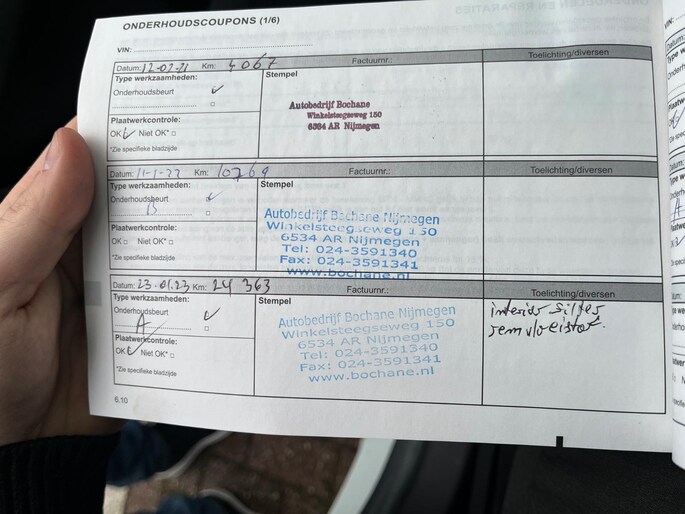 ONDERHOUDSCOUPONS (1/6)
VIN:
Datum: 12-02-21 Km: 4067 Factuurnr.: Toelichting/diversen
Type werkzaamheden: Stempel
Onderhoudsbeurt
Autobedrijf Bochane
Winkelsteegseweg 150
6534 AR Nijmegen
Plaatwerkcontrole:
OK Niet OK*
*Zie specifieke bladzijde
Datum: 11-1-22 Km: 10769 Factuurnr.: Toelichting/diversen
Type werkzaamheden: Stempel
Onderhoudsbeurt
B
Autobedrijf Bochane Nijmegen
Winkelsteegseweg 150
6534 AR Nijmegen
Tel: 024-3591340
Fax: 024-3591341
www.bochane.nl
Plaatwerkcontrole:
OK Niet OK*
*Zie specifieke bladzijde
Datum: 23-01.23 Km: 24 363 Factuurnr.: Toelichting/diversen
Type werkzaamheden: Stempel
Onderhoudsbeurt
A
Autobedrijf Bochane Nijmegen
Winkelsteegseweg 150
6534 AR Nijmegen
Tel: 024-3591340
Fax: 024-3591341
www.bochane.nl
remvloeistof.
Plaatwerkcontrole:
OK Niet OK*
*Zie specifieke bladzijde
6.10